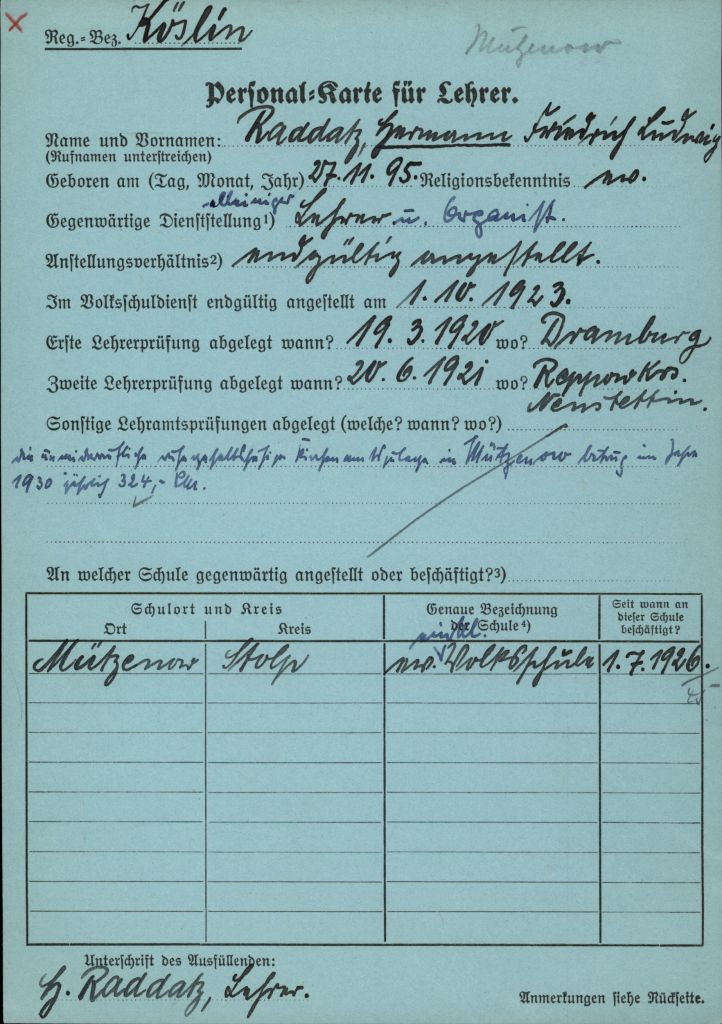 Reg.-Bez. Köslin
Mützenow
Personal-Karte für Lehrer.
Name und Vornamen: Raddatz, Hermann Friedrich Ludwig
(Rufnamen unterstreichen)
Geboren am (Tag, Monat, Jahr) 27. 11. 95. Religionsbekenntnis ev.
alleiniger
Gegenwärtige Dienststellung¹) Lehrer u. Organist.
Anstellungsverhältnis²) endgültig angestellt.
Im Volksschuldienst endgültig angestellt am 1. 10. 1923.
Erste Lehrerprüfung abgelegt wann? 19. 3. 1920 wo? Dramburg
Zweite Lehrerprüfung abgelegt wann? 20. 6. 1921 wo? Reppow Krs.
Neustettin.
Sonstige Lehramtsprüfungen abgelegt (welche? wann? wo?)
die unwiderrufliche ruhegehaltsfähige Kirchenamtszulage in Mützenow betrug im Jahre
1930 jährlich 324,-
An welcher Schule gegenwärtig angestellt oder beschäftigt?³)
Schulort und Kreis
Ort
Kreis
Genaue Bezeichnung
der Schule⁴)
Seit wann an
dieser Schule
beschäftigt?
einkl.
Mützenow Stolp ev. Volksschule 1. 7. 1926.
Unterschrift des Ausfüllenden:
H. Raddatz, Lehrer.
Anmerkungen siehe Rückseite.